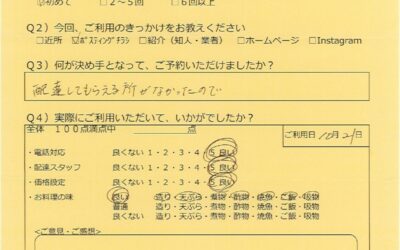 ☑初めて □2～5回 □6回以上
Q2）今回、ご利用のきっかけをお教えください
□近所 ☑ポスティングチラシ □紹介（知人・業者） □ホームページ □Instagram
Q3）何が決め手となって、ご予約いただけましたか？
配達してもらえる所がなかったので
Q4）実際にご利用いただいて、いかがでしたか？
全体 100点満点中 点
ご利用日 10月21日
・電話対応 良くない 1・2・3・4・5 良い
・配達スタッフ 良くない 1・2・3・4・5 良い
・価格設定 良くない 1・2・3・4・5 良い
・お料理の味 良い 造り・天ぷら・煮物・酢物・焼魚・ご飯・吸物
普通 造り・天ぷら・煮物・酢物・焼魚・ご飯・吸物
良くない 造り・天ぷら・煮物・酢物・焼魚・ご飯・吸物
<ご意見・ご感想>